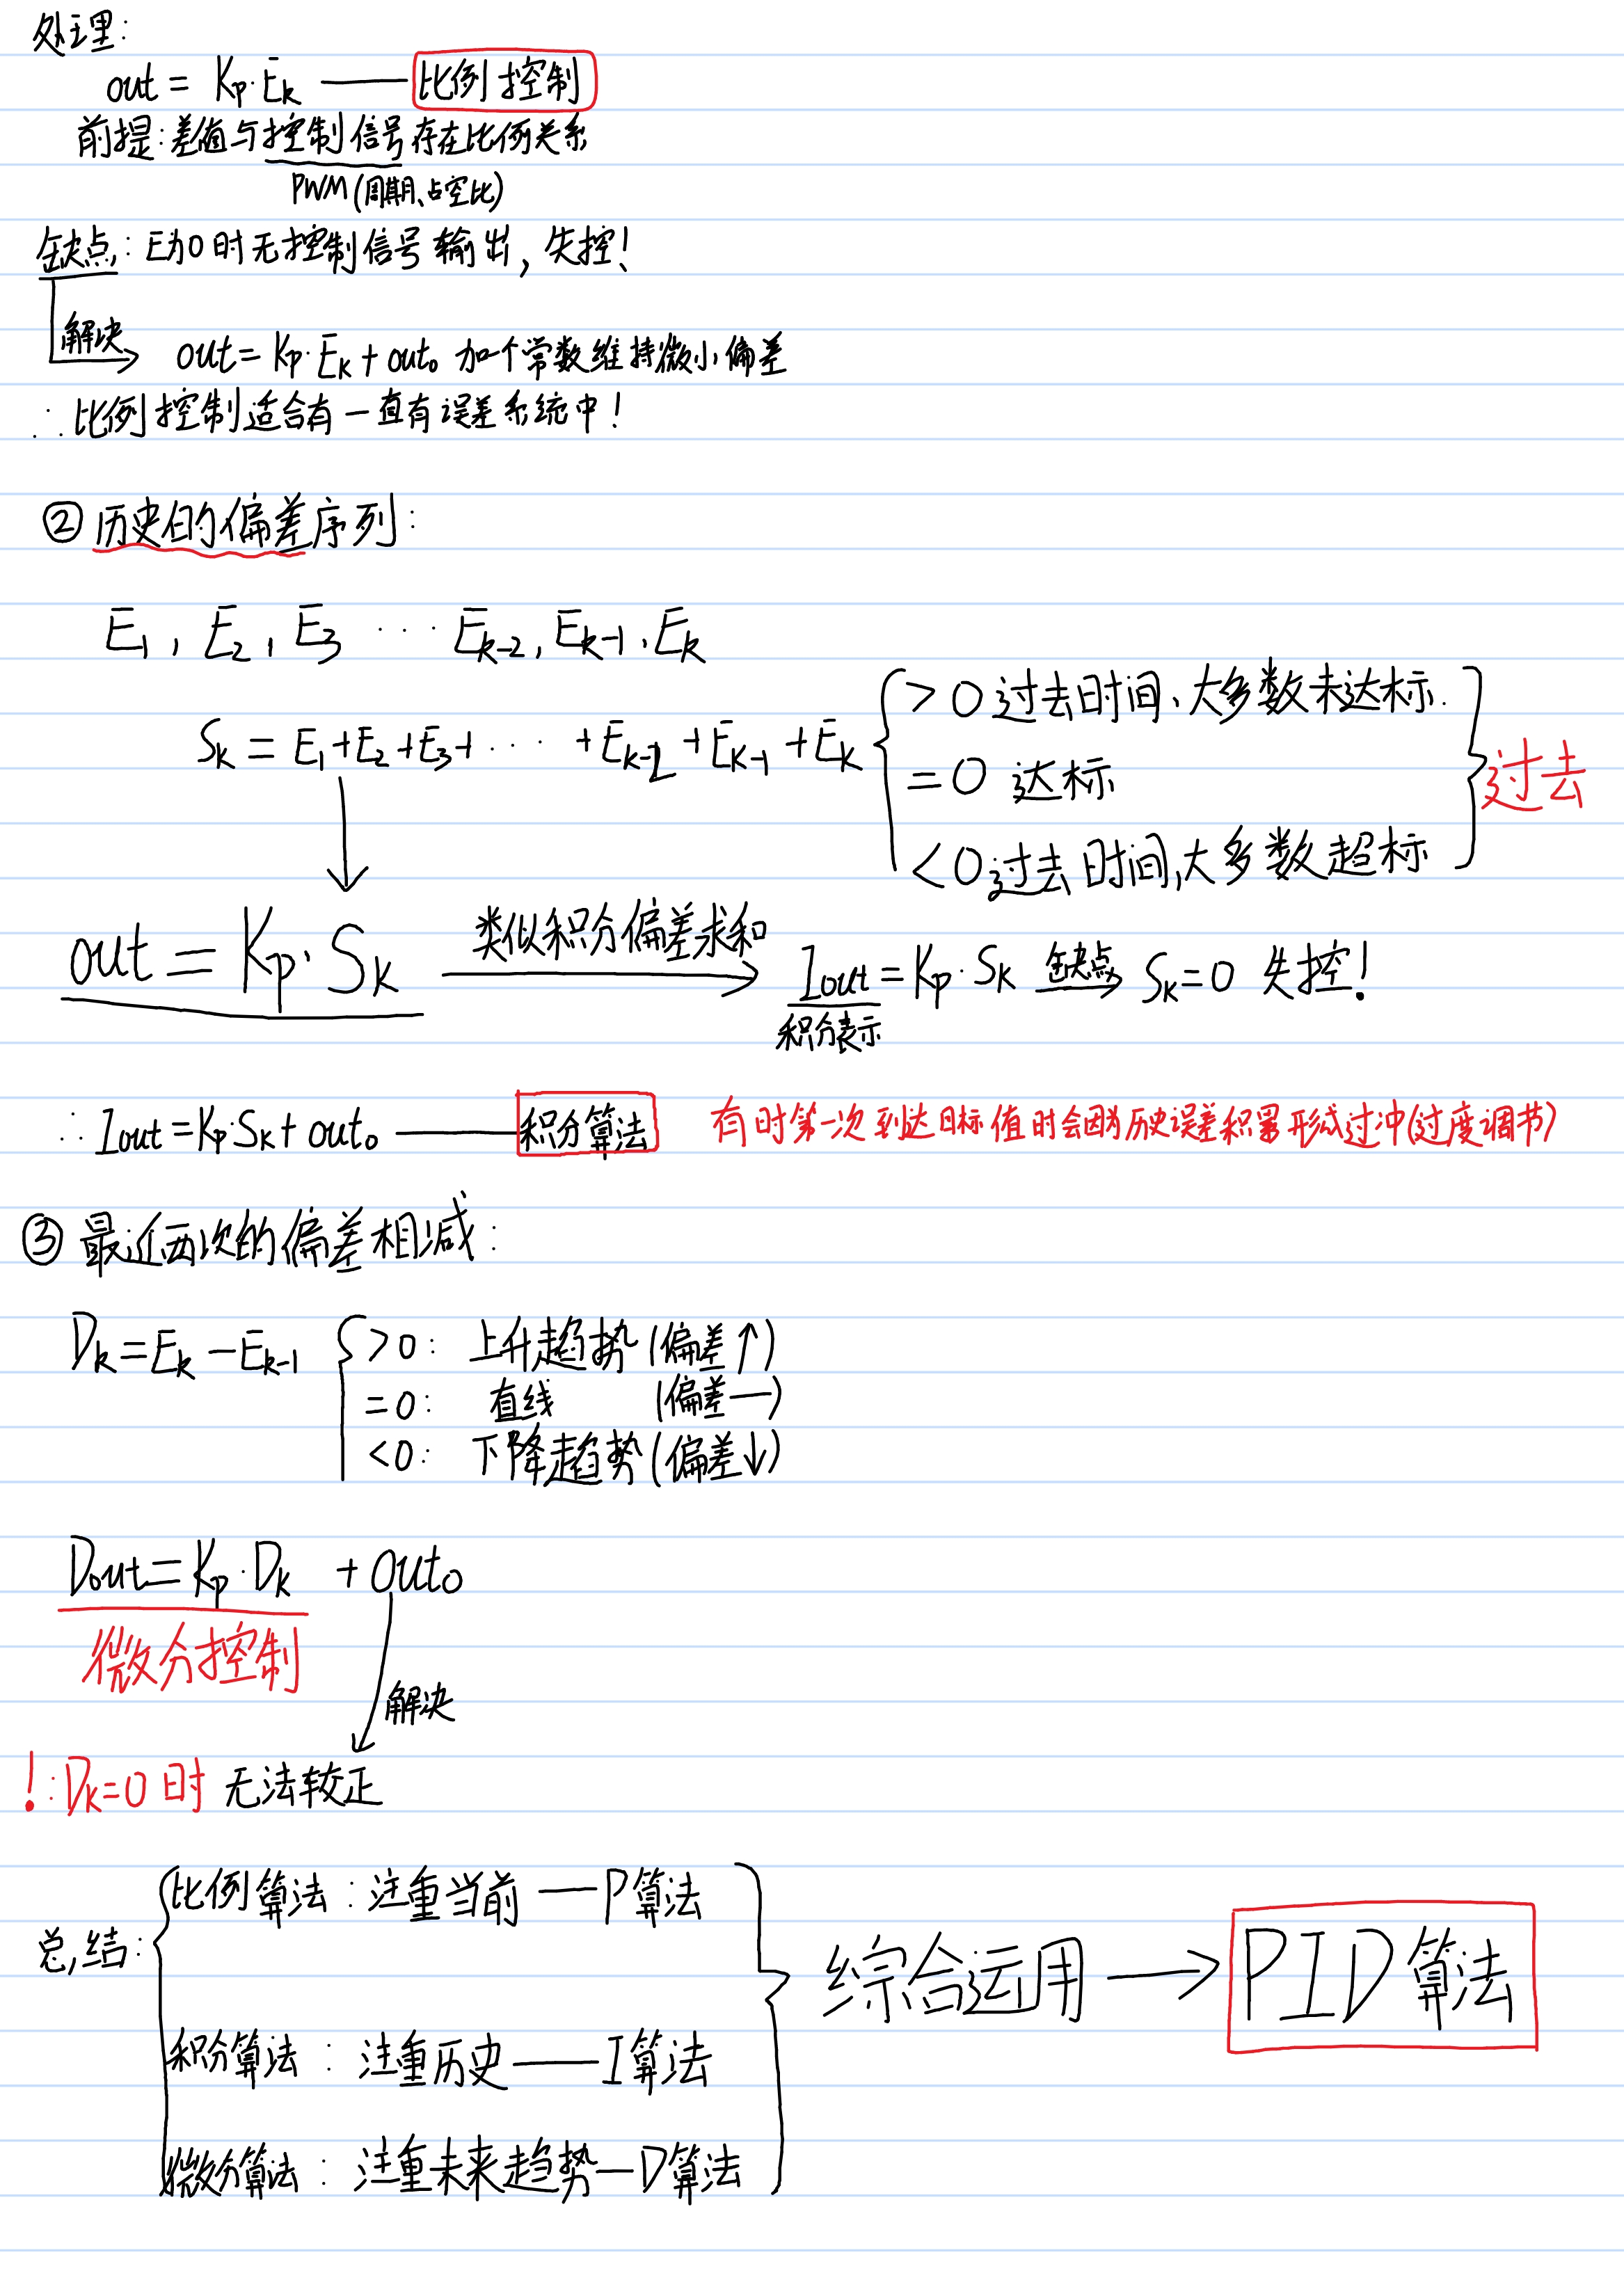 处理：
out = Kp·Ek —— 比例控制
前提：差值与控制信号存在比例关系
PWM(周期、占空比)
缺点：E为0时无控制信号输出，失控！
解决
out = Kp·Ek + out₀ 加个常数维持微小偏差
∴比例控制适合有一直有误差系统中！
② 历史的偏差序列：
E₁, E₂, E₃ ··· Ek-2, Ek-1, Ek
>0 过去时间、大多数未达标.
Sk = E₁+E₂+E₃+ ··· +Ek-2+Ek-1+Ek
=0 达标
过去
<0 过去时间,大多数超标
out = Kp·Sk 类似积分偏差求和 Iout = Kp·Sk 缺点 Sk=0 失控！
积分表示
∴ Iout = Kp·Sk + out₀ —— 积分算法 有时第一次到达目标值时会因为历史误差积累形成过冲(过度调节)
③ 最近两次的偏差相减：
Dk = Ek - Ek-1 >0： 上升趋势(偏差↑)
=0： 直线 (偏差—)
<0： 下降趋势(偏差↓)
Dout = Kp·Dk + out₀
微分控制
解决
！：Dk=0时 无法较正
比例算法：注重当前 — P算法
总结： 综合运用 → PID算法
积分算法：注重历史 — I算法
微分算法：注重未来趋势 — D算法